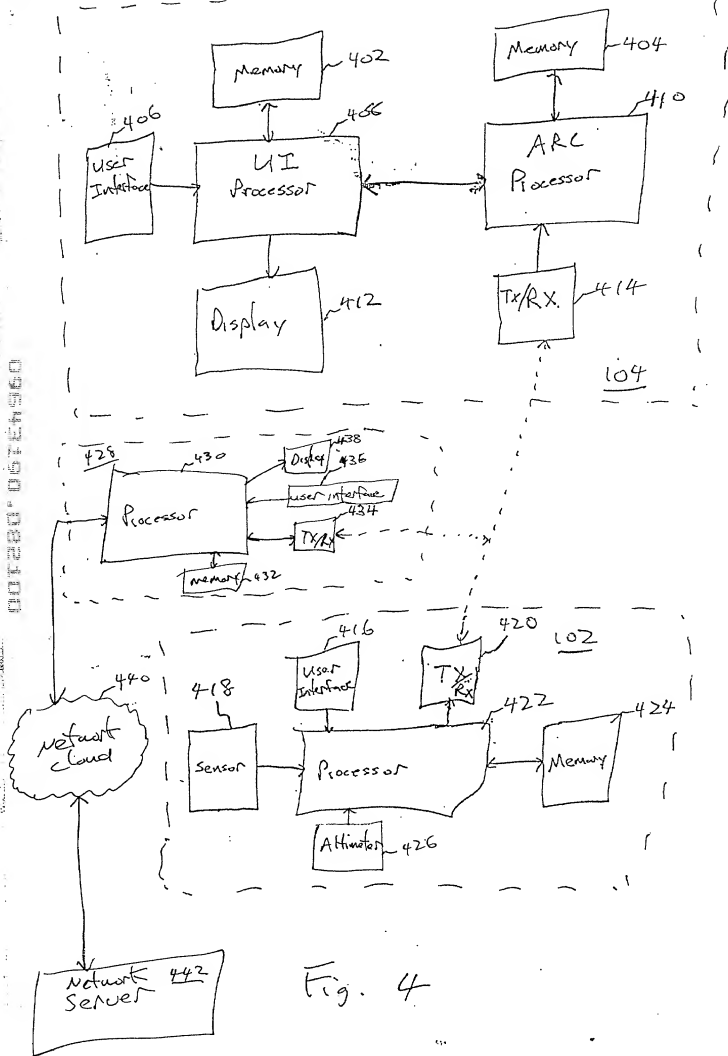 Memory
402
Memory
404
406
User
Interface
UI
Processor
ARC
Processor
410
Display
412
TX/RX
414
104
428
430
Processor
Display
438
436
user interface
434
TX/RX
memory
432
440
Network
Cloud
416
User
Interface
420
TX/
RX
102
418
Sensor
422
Processor
424
Memory
Altimeter
426
Network 442
Server
Fig. 4